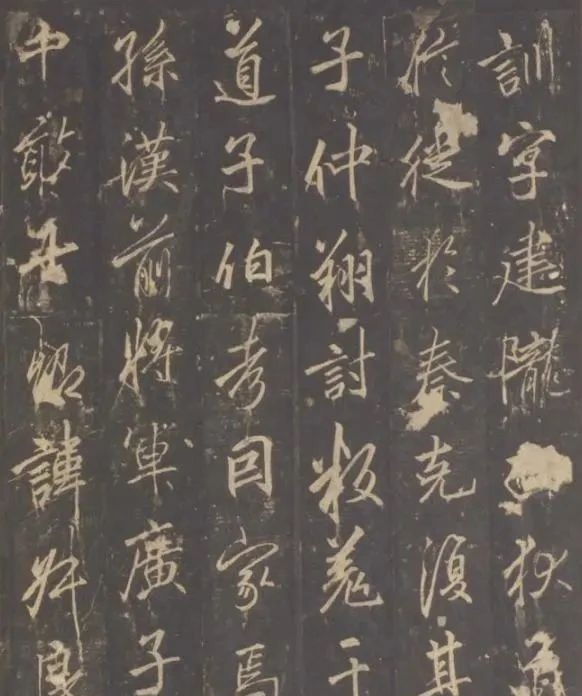 訓字建隴狄道
信徙於秦克復其
子仲翔討叛羌于
道子伯考因家焉
孫漢前將軍廣子
中敢諱